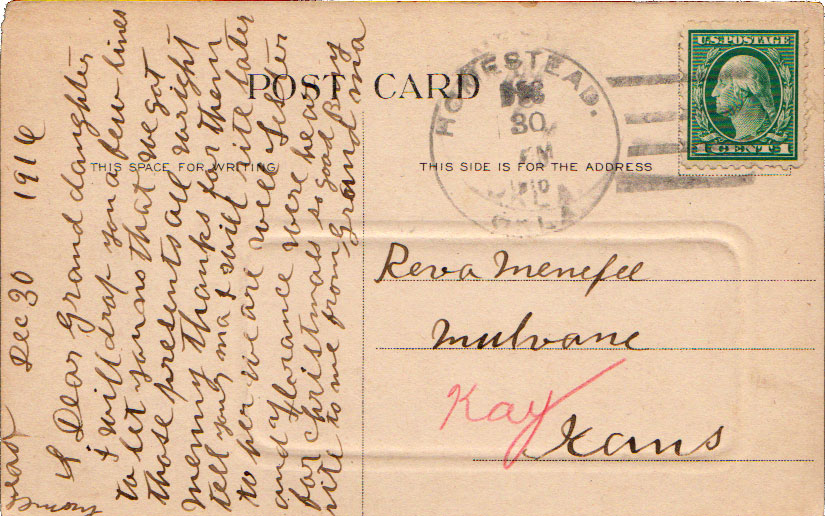 POST CARD
THIS SPACE FOR WRITING
THIS SIDE IS FOR THE ADDRESS
U.S. POSTAGE
1 CENT 1
HOMESTEAD.
DEC
30
PM
OKLA
Reva Menefee
Mulvane
Kay
Kans
Dec 30 1916
Dear Grand daughter
I will drop you a few lines
to let you no that we got
those presents all wright
meny thanks for them
tell your ma I will rite later
to her we are well Lester
and Florance were hear
for christmas so good By
rite to me from Grand ma